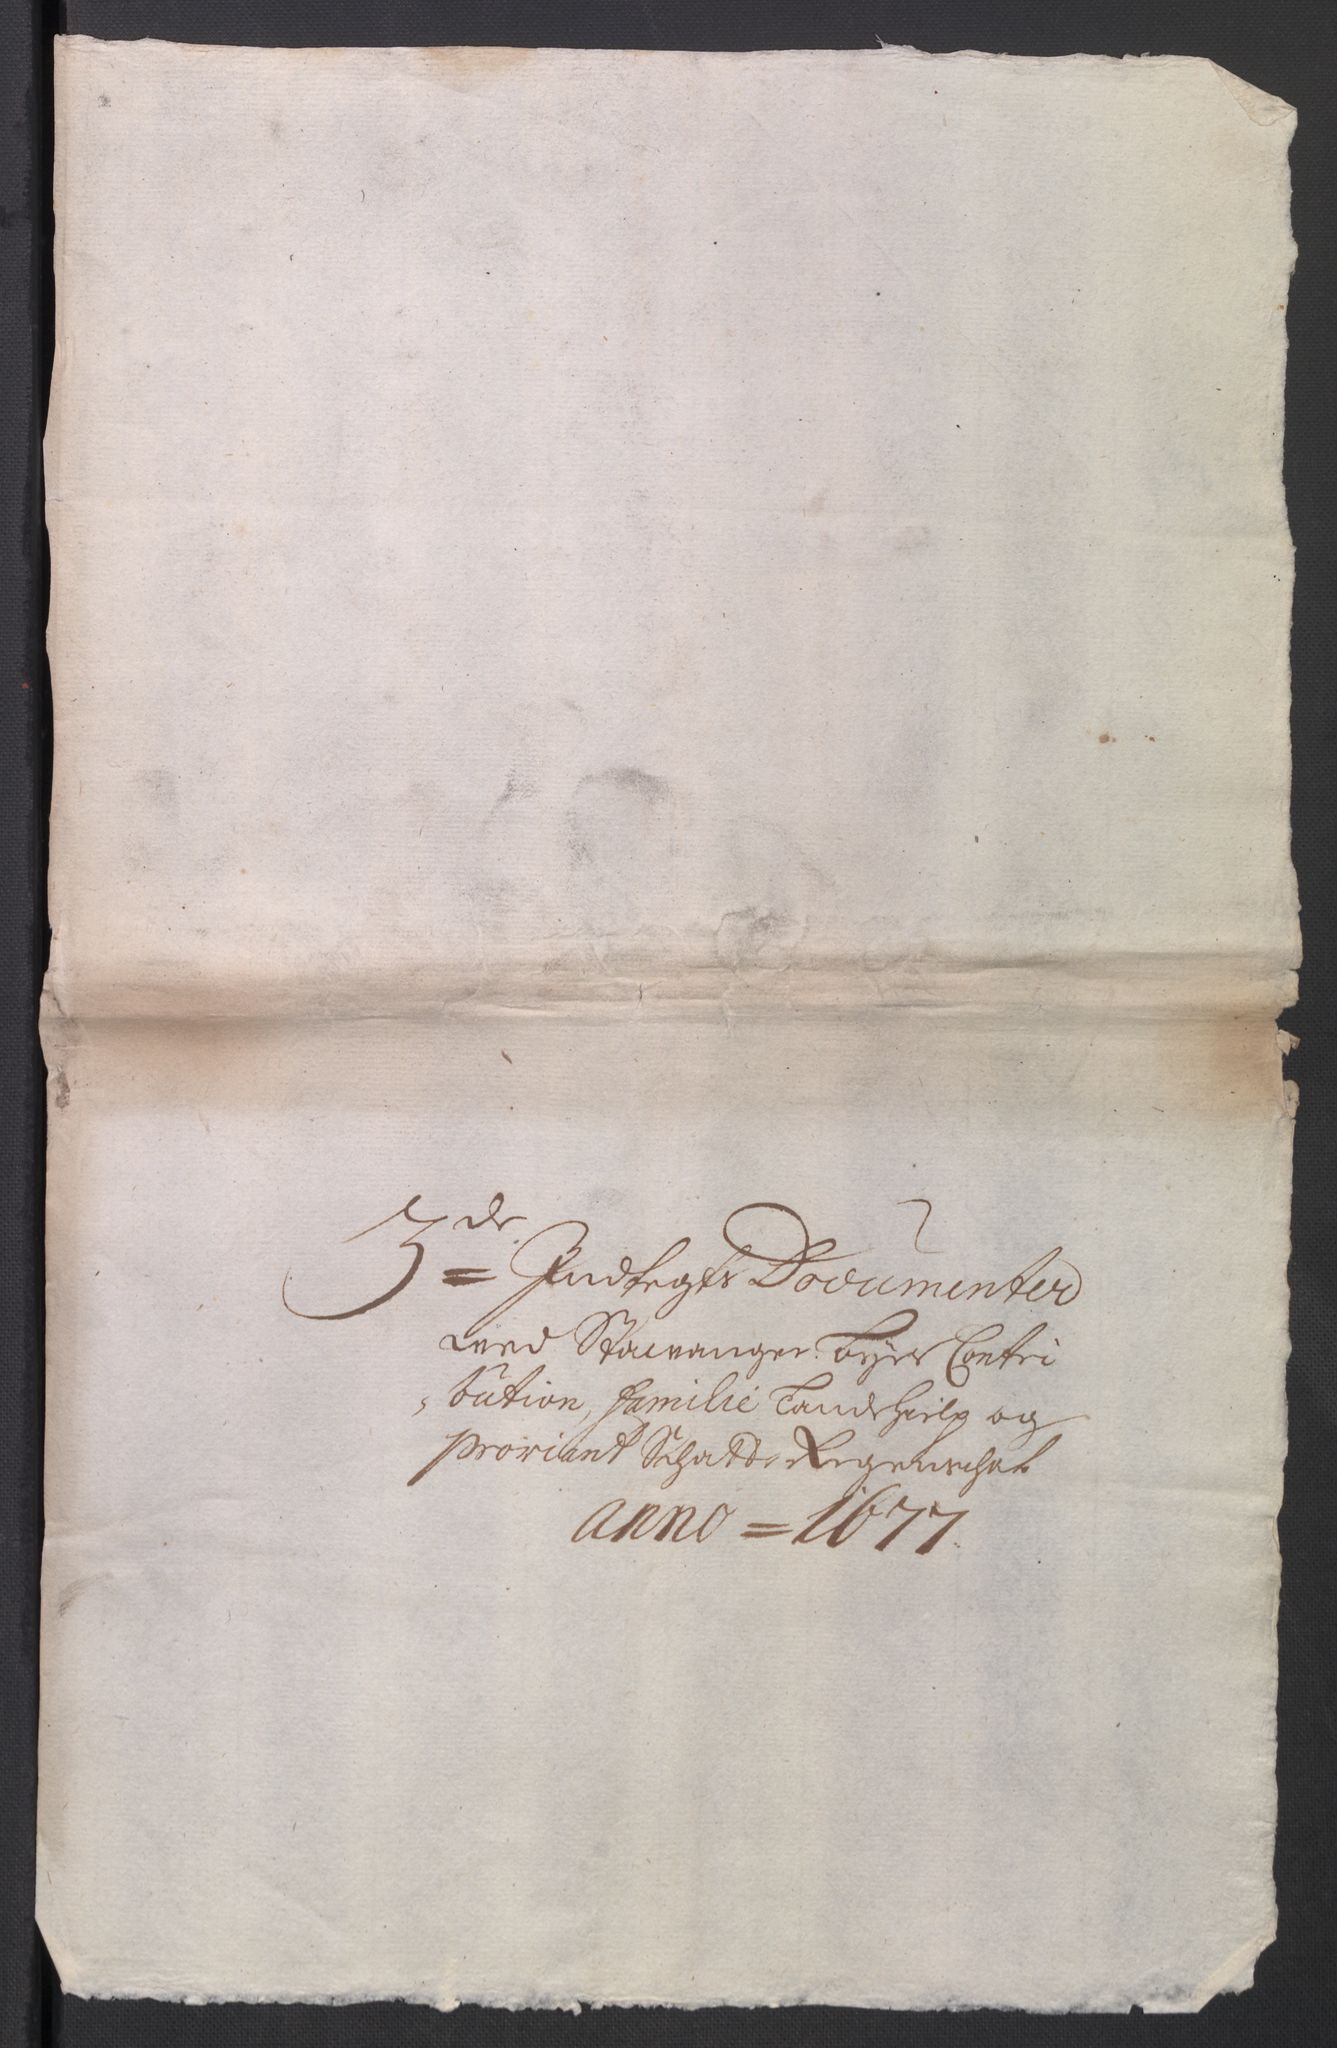 3de Indtegts Documenter
ved Stavanger byes Contri
bution, familie Landehielp og
proviant Schatts Regenschab
Anno = 1677.